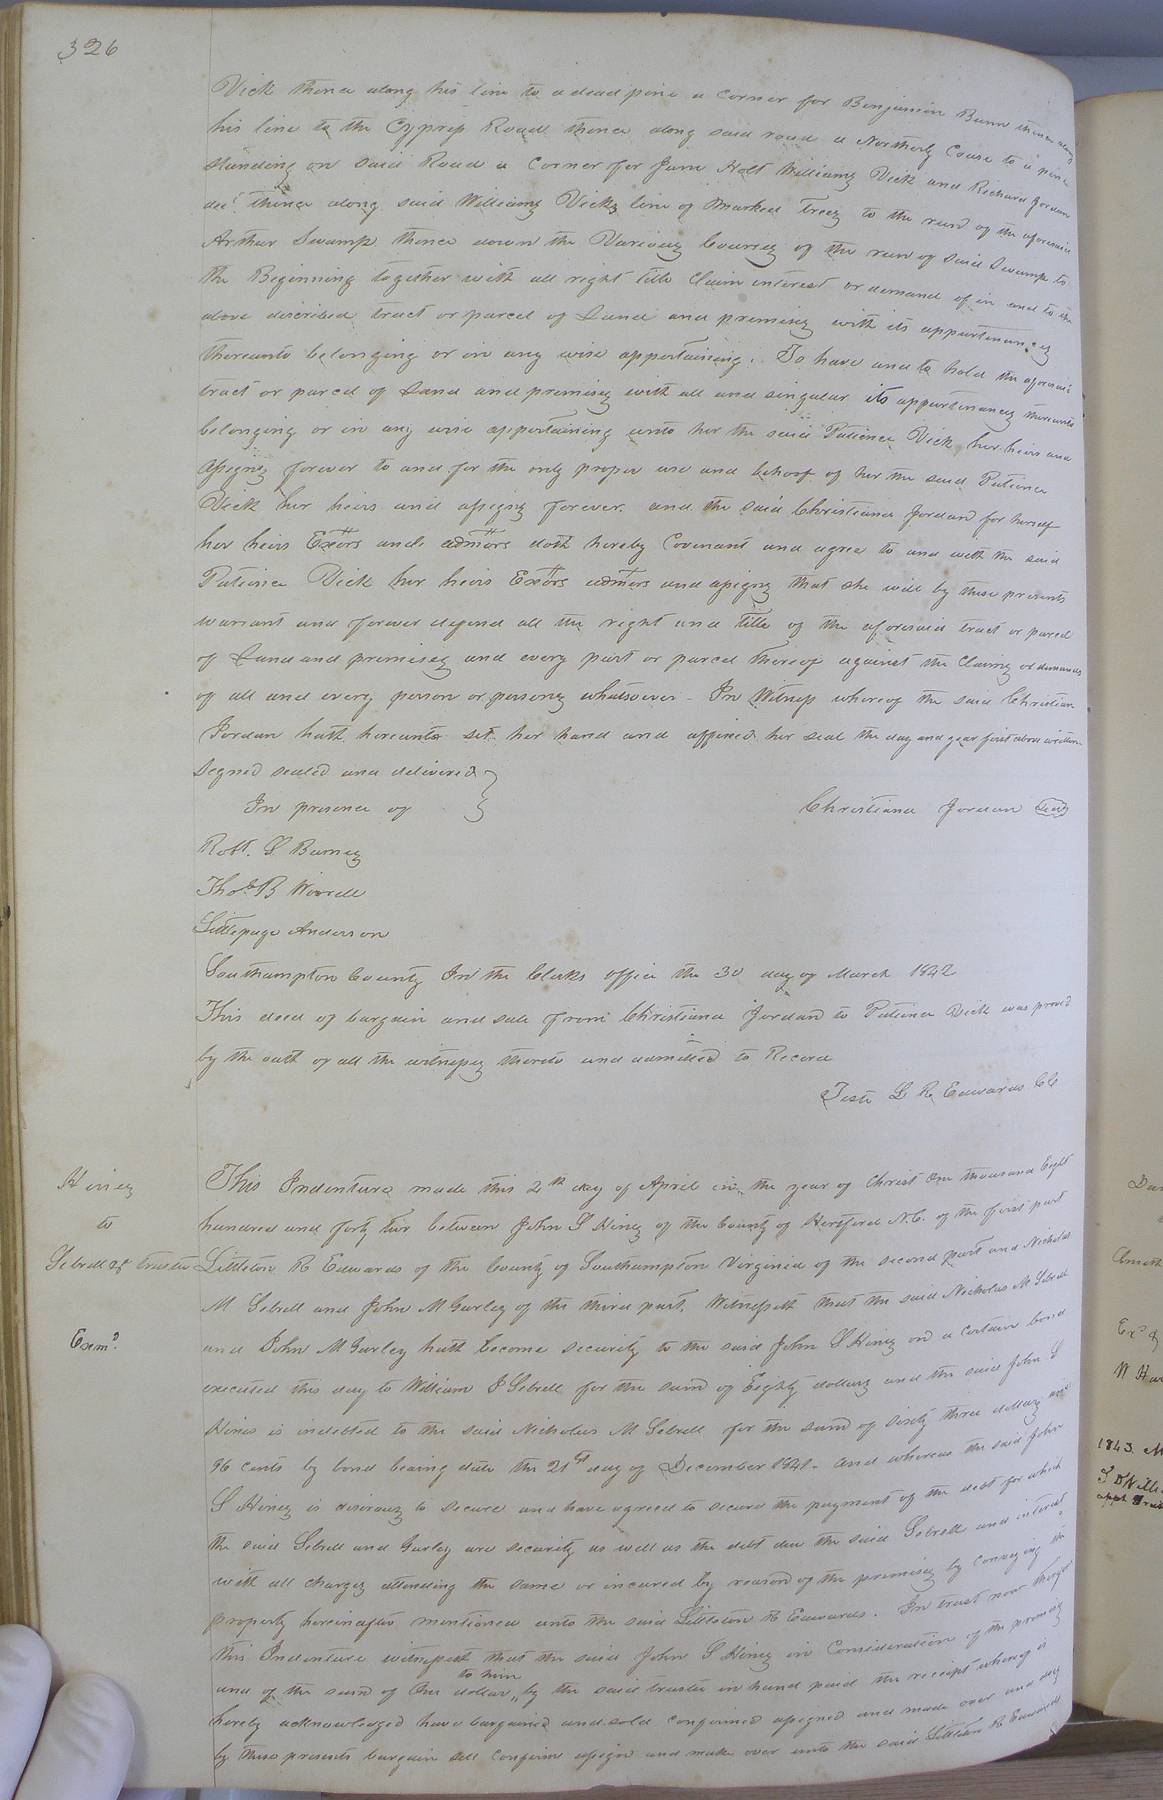 326
Vick thence along his line to a dead pine a corner for Benjamin Bunn thence along
his line to the Cypress Road thence along said road a Northerly Couse to a pine
standing on said Road a Corner for Jane Holt Williams Vick and Richard Jordan
decd. thence along said Williams Vicks line of Marked Trees to the run of the aforesaid
Arthur Swamp thence down the Various Courses of the run of said Swamp to
the Beginning together with all right title Claim interest or demand of in and to the
above discribed tract or parcel of Land and premises with its appurtenances
thereunto belonging or in any wise appertaining. To have and to hold the aforesaid
tract or parcel of Land and premises with all and singular its appurtenances thereunto
belonging or in any wise appertaining unto her the said Patience Vick her heirs and
assigns forever to and for the only proper use and behoof of her the said Patience
Vick her heirs and assigns forever. and the said Christiana Jordan for herself
her heirs Exors and admors doth hereby Covenant and agree to and with the said
Patience Vick her heirs Exors admors and assigns that she will by these presents
warrant and forever defend all the right and title of the aforesaid tract or parcel
of Land and premises and every part or parcel thereof against the Claims or demands
of all and every person or persons whatsoever - In Witness whereof the said Christian
Jordan hath hereunto set her hand and affixed her seal the day and year first above written
Signed sealed and delivered
In presence of
Christiana Jordan Seal
Robt. S Barnes
Thos. B Worrell
Littlepage Anderson
Southampton County In the Clerks office the 30 day of March 1842
This deed of bargain and sale from Christiana Jordan to Patience Vick was proved
by the oath of all the witnesses thereto and admitted to Record
Teste L R Edwards CC
Hines
to
Sebrell &c trustee
Exmd.
This Indenture made this 2th day of April in the year of Christ One thousand Eight
hundred and forty two between John S Hines of the County of Hertford N.C. of the first part
Littleton R Edwards of the County of Southampton Virginia of the second part and Nicholas
M Sebrell and John M Gurley of the third part. Witnesseth that the said Nicholas M Sebrell
and John M Gurley hath become security to the said John S Hines on a certain bond
executed this day to William J Sebrell for the sum of Eighty dollars and the said John S
Hines is indebted to the said Nicholas M Sebrell for the sum of sixty three dollars and
96 cents by bond bearing date the 21st day of December 1841. and whereas the said John
S Hines is desirous to secure and have agreed to secure the payment of the debt for which
the said Sebrell and Gurley are security as well as the debt due the said Sebrell and interest
with all charges attending the same or incured by reason of the premises by conveying the
property hereinafter mentioned unto the said Littleton R Edwards. In trust now therefore
this Indenture witnesseth that the said John S Hines in Consideration of the premises
and of the sum of One dollar to him by the said trustee in hand paid the receipt whereof is
hereby acknowledged have bargained and sold confirmed assigned and made over and doth
by these presents bargain sell confirm assign and make over unto the said Littleton R Edwards
1843. M